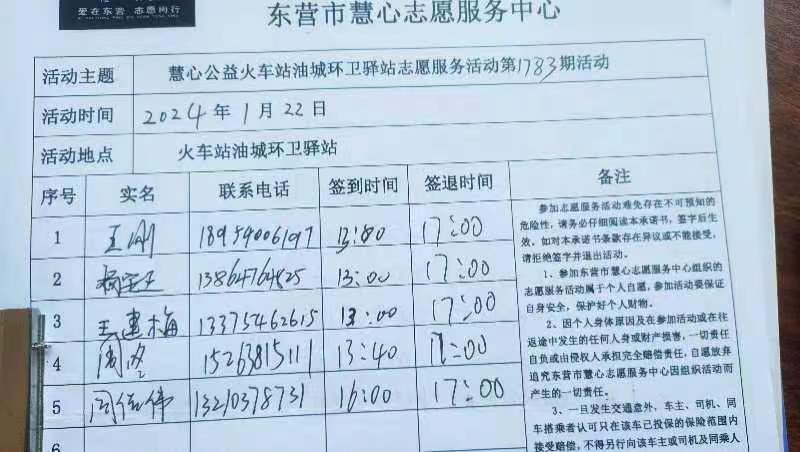 爱在东营 志愿同行
东营市慧心志愿服务中心
活动主题 慧心公益火车站油城环卫驿站志愿服务活动第1783期活动
活动时间 2024年1月22日
活动地点 火车站油城环卫驿站
序号 实名 联系电话 签到时间 签退时间 备注
1 王刚 18959006197 13:00 17:00
2 13864764825 13:00 17:00
3 王建梅 13375462615 13:00 17:00
4 周 15263815111 13:40 17:00
5 周伟 13210378731 16:00 17:00
6
参加志愿服务活动难免存在不可预知的
危险性,请务必仔细阅读本承诺书,签字后生
效,如对本承诺书条款存在异议或不能接受,
请拒绝签字并退出活动。
1、参加东营市慧心志愿服务中心组织的
志愿服务活动属于个人自愿,参加活动要保证
自身安全,保护好个人财物。
2、因个人身体原因及在参加活动或在往
返途中发生的任何人身或财产损害,一切责任
自负或由侵权人承担完全赔偿责任,自愿放弃
追究东营市慧心志愿服务中心因组织活动而
产生的一切责任。
3、一旦发生交通意外,车主、司机、同
车搭乘者认可只在该车已投保的保险范围内
接受赔偿,不得另行向该车主或司机及同乘人